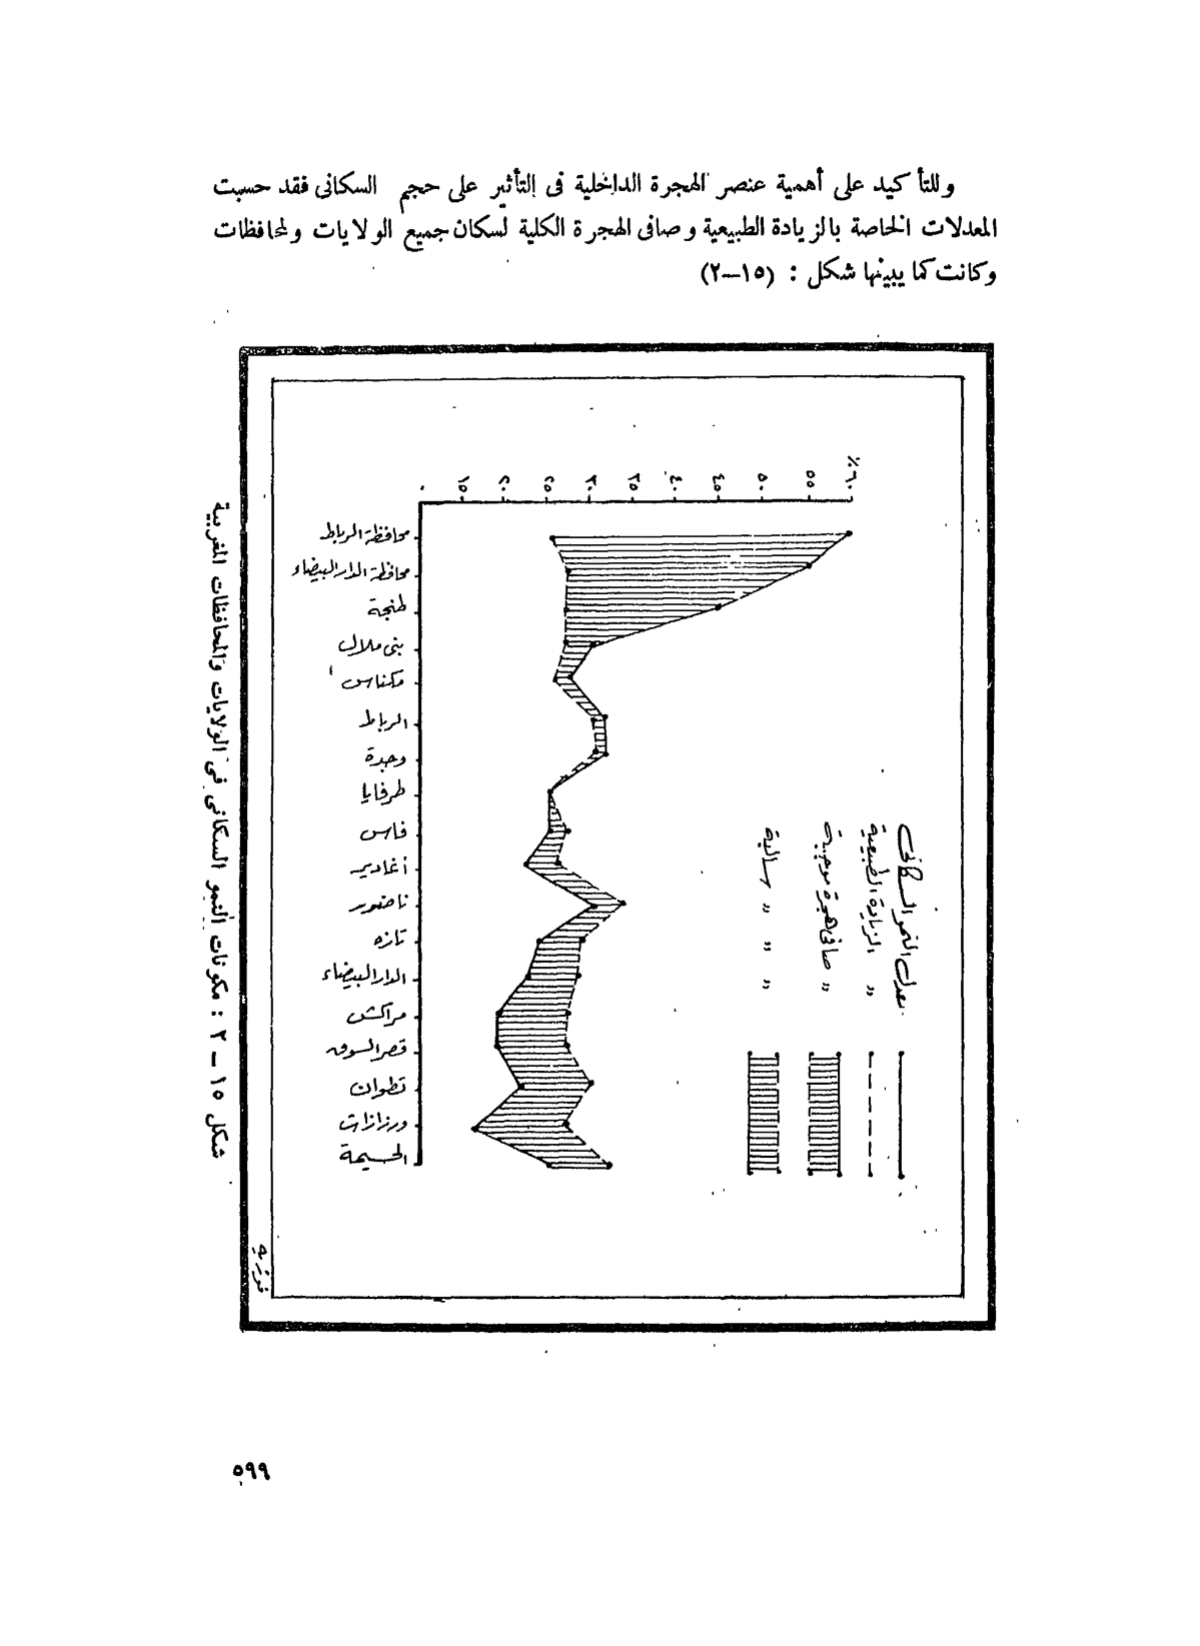 وللتأكيد على أهمية عنصر الهجرة الداخلية فى التأثير على حجم السكانى فقد حسبت
المعدلات الخاصة بالزيادة الطبيعية وصافى الهجرة الكلية لسكان جميع الولايات ولمحافظات
وكانت كما يبينها شكل : (١٥—٢)
٪٦٠
٥٥
٥٠
٤٥
٤٠
٣٥
٣٠
٢٥
٢٠
١٥
٠
محافظة الرباط
محافظة الدار البيضاء
طنجة
بنى ملال
مكناس
الرباط
وجدة
طرفايا
فاس
أغادير
ناضور
تازه
الدار البيضاء
مراكش
قصر السوق
تطوان
ورزازات
الحسيمة
معدل النمو السكانى
" الزيادة الطبيعية
" صافى هجرة موجبة
" " " سالبة
فوزيه
شكل ١٥ – ٢ : مكونات النمو السكانى فى الولايات والمحافظات المغربية
٥٩٩